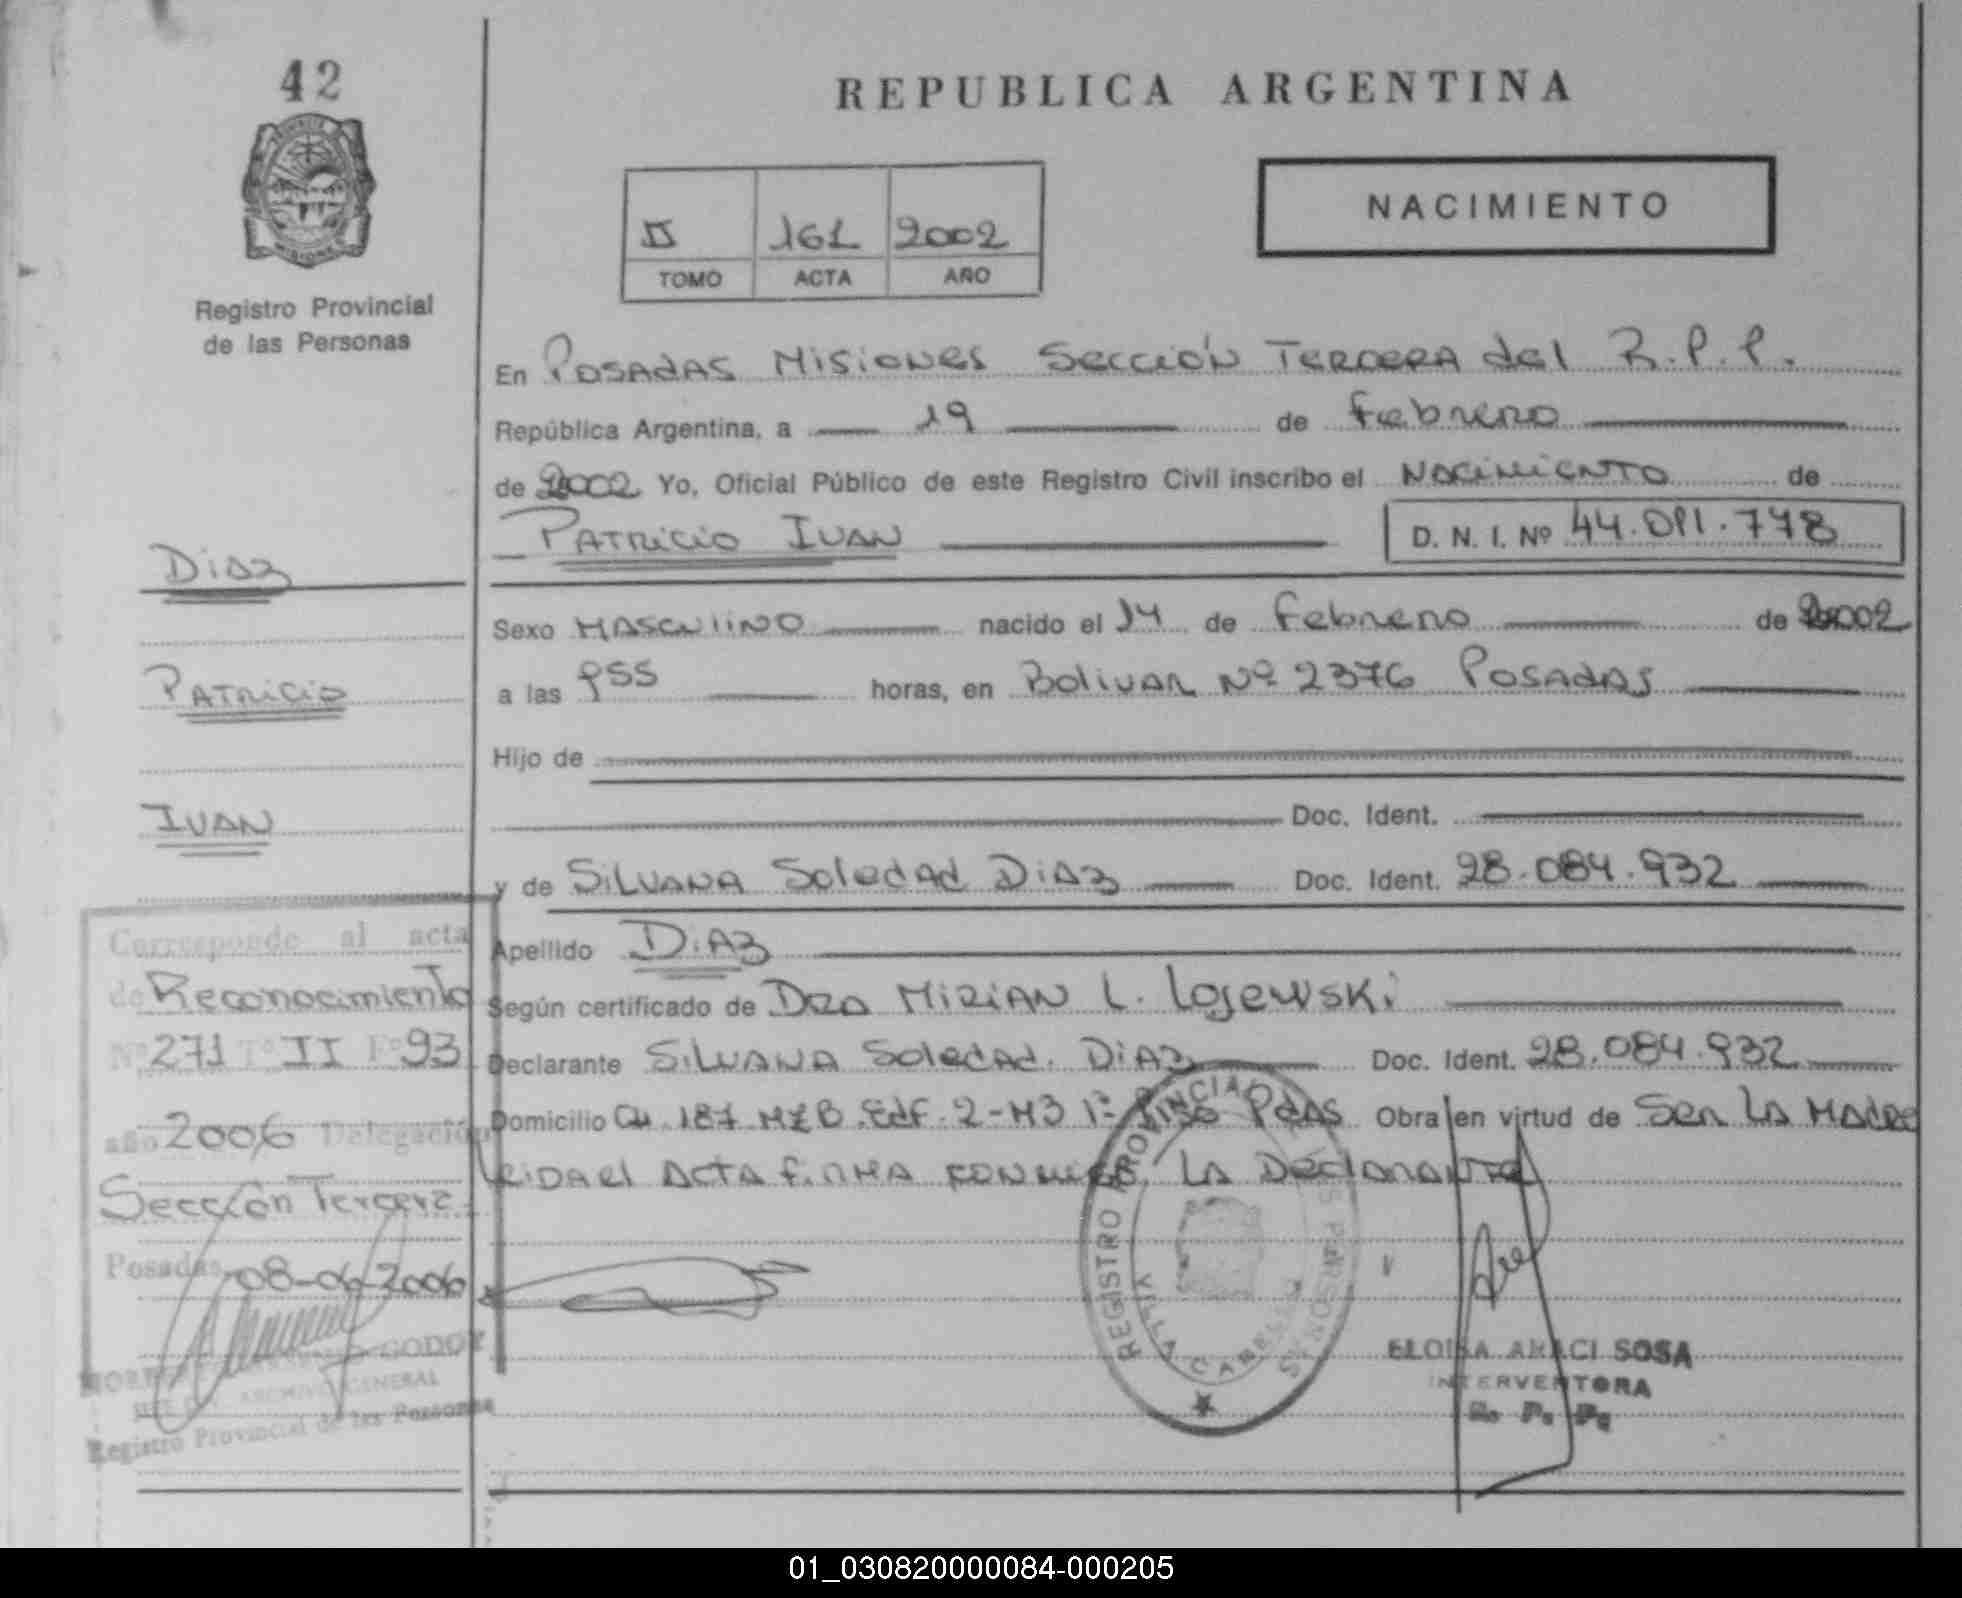 42
REPUBLICA ARGENTINA
NACIMIENTO
II 161 2002
TOMO ACTA AÑO
Registro Provincial
de las Personas
En POSADAS MISIONES SECCIÓN TERCERA del R.P.P.
República Argentina, a 19 de Febrero
de 2002 Yo, Oficial Público de este Registro Civil inscribo el NACIMIENTO de
PATRICIO IVAN D. N. I. Nº 44.011.778
DIAZ
Sexo MASCULINO nacido el 14 de Febrero de 2002
PATRICIO
a las horas, en BOLIVAR Nº 2376 POSADAS
Hijo de
IVAN
Doc. Ident.
y de SILVANA Soledad DIAZ Doc. Ident. 28.084.932
Apellido DIAZ
Según certificado de DRA MIRIAN L. Lojewski
Declarante SILVANA Soledad. DIAZ Doc. Ident. 28.084.932
Domicilio CH 187 MZ B Edf. 2-M3 1º Piso Pdas Obra en virtud de Ser LA MADRE
LEIDA el ACTA FIRMA CONMIGO LA DEClARANTE
Corresponde al acta
de Reconocimiento
Nº 271 Tº II Fº 93
año 2006 Delegación
Sección Tercera
Posadas, 08-06-2006
GODOY
ARCHIVO GENERAL
Registro Provincial de las Personas
REGISTRO PROVINCIAL DE LAS PERSONAS
VILLA CABELLO
ELOISA ARACI SOSA
INTERVENTORA
R. P. P.
01_030820000084-000205